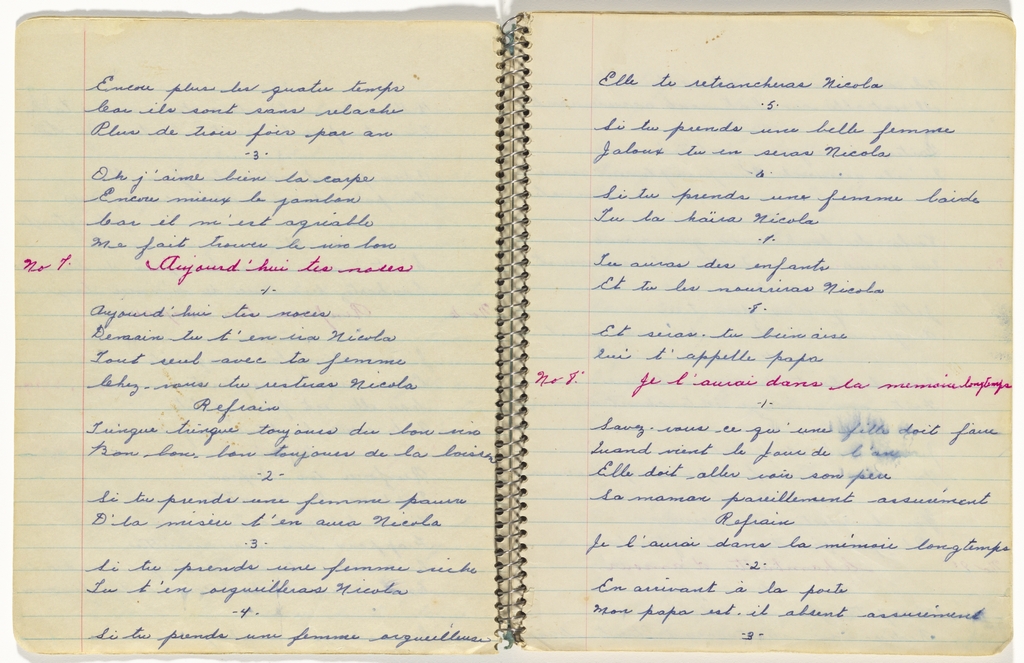 Encore plus les quatre temps
Car ils sont sans relache
Plus de trois fois par an
-3-
Oh j'aime bien la carpe
Encore mieux le jambon
Car il m'est agréable
Me fait trouver le vin bon
No 7. Aujourd'hui tes noces
-1-
Aujourd'hui tes noces
Demain tu t'en ira Nicola
Tout seul avec ta femme
Chez-vous tu resteras Nicola
Refrain
Trinque trinque toujours du bon vin
Bon bon, bon toujours de la boisson
-2-
Si tu prends une femme pauvre
D'la misère t'en aura Nicola
-3-
Si tu prends une femme riche
Tu t'en orgueilleras Nicola
-4-
Si tu prends une femme orgueilleuse
Elle te retrancheras Nicola
-5-
Si tu prends une belle femme
Jaloux tu en seras Nicola
-6-
Si tu prends une femme laide
Tu la haïra Nicola
-7-
Tu auras des enfants
Et tu les nourriras Nicola
-8-
Et seras-tu bien aise
Qui t'appelle papa
No 8. Je l'aurai dans la mémoire longtemps
-1-
Savez-vous ce qu'une fille doit faire
Quand vient le Jour de l'an
Elle doit aller voir son père
Sa maman pareillement assurément
Refrain
Je l'aurai dans la mémoire longtemps
-2-
En arrivant à la porte
Mon papa est-il absent assurément
-3-